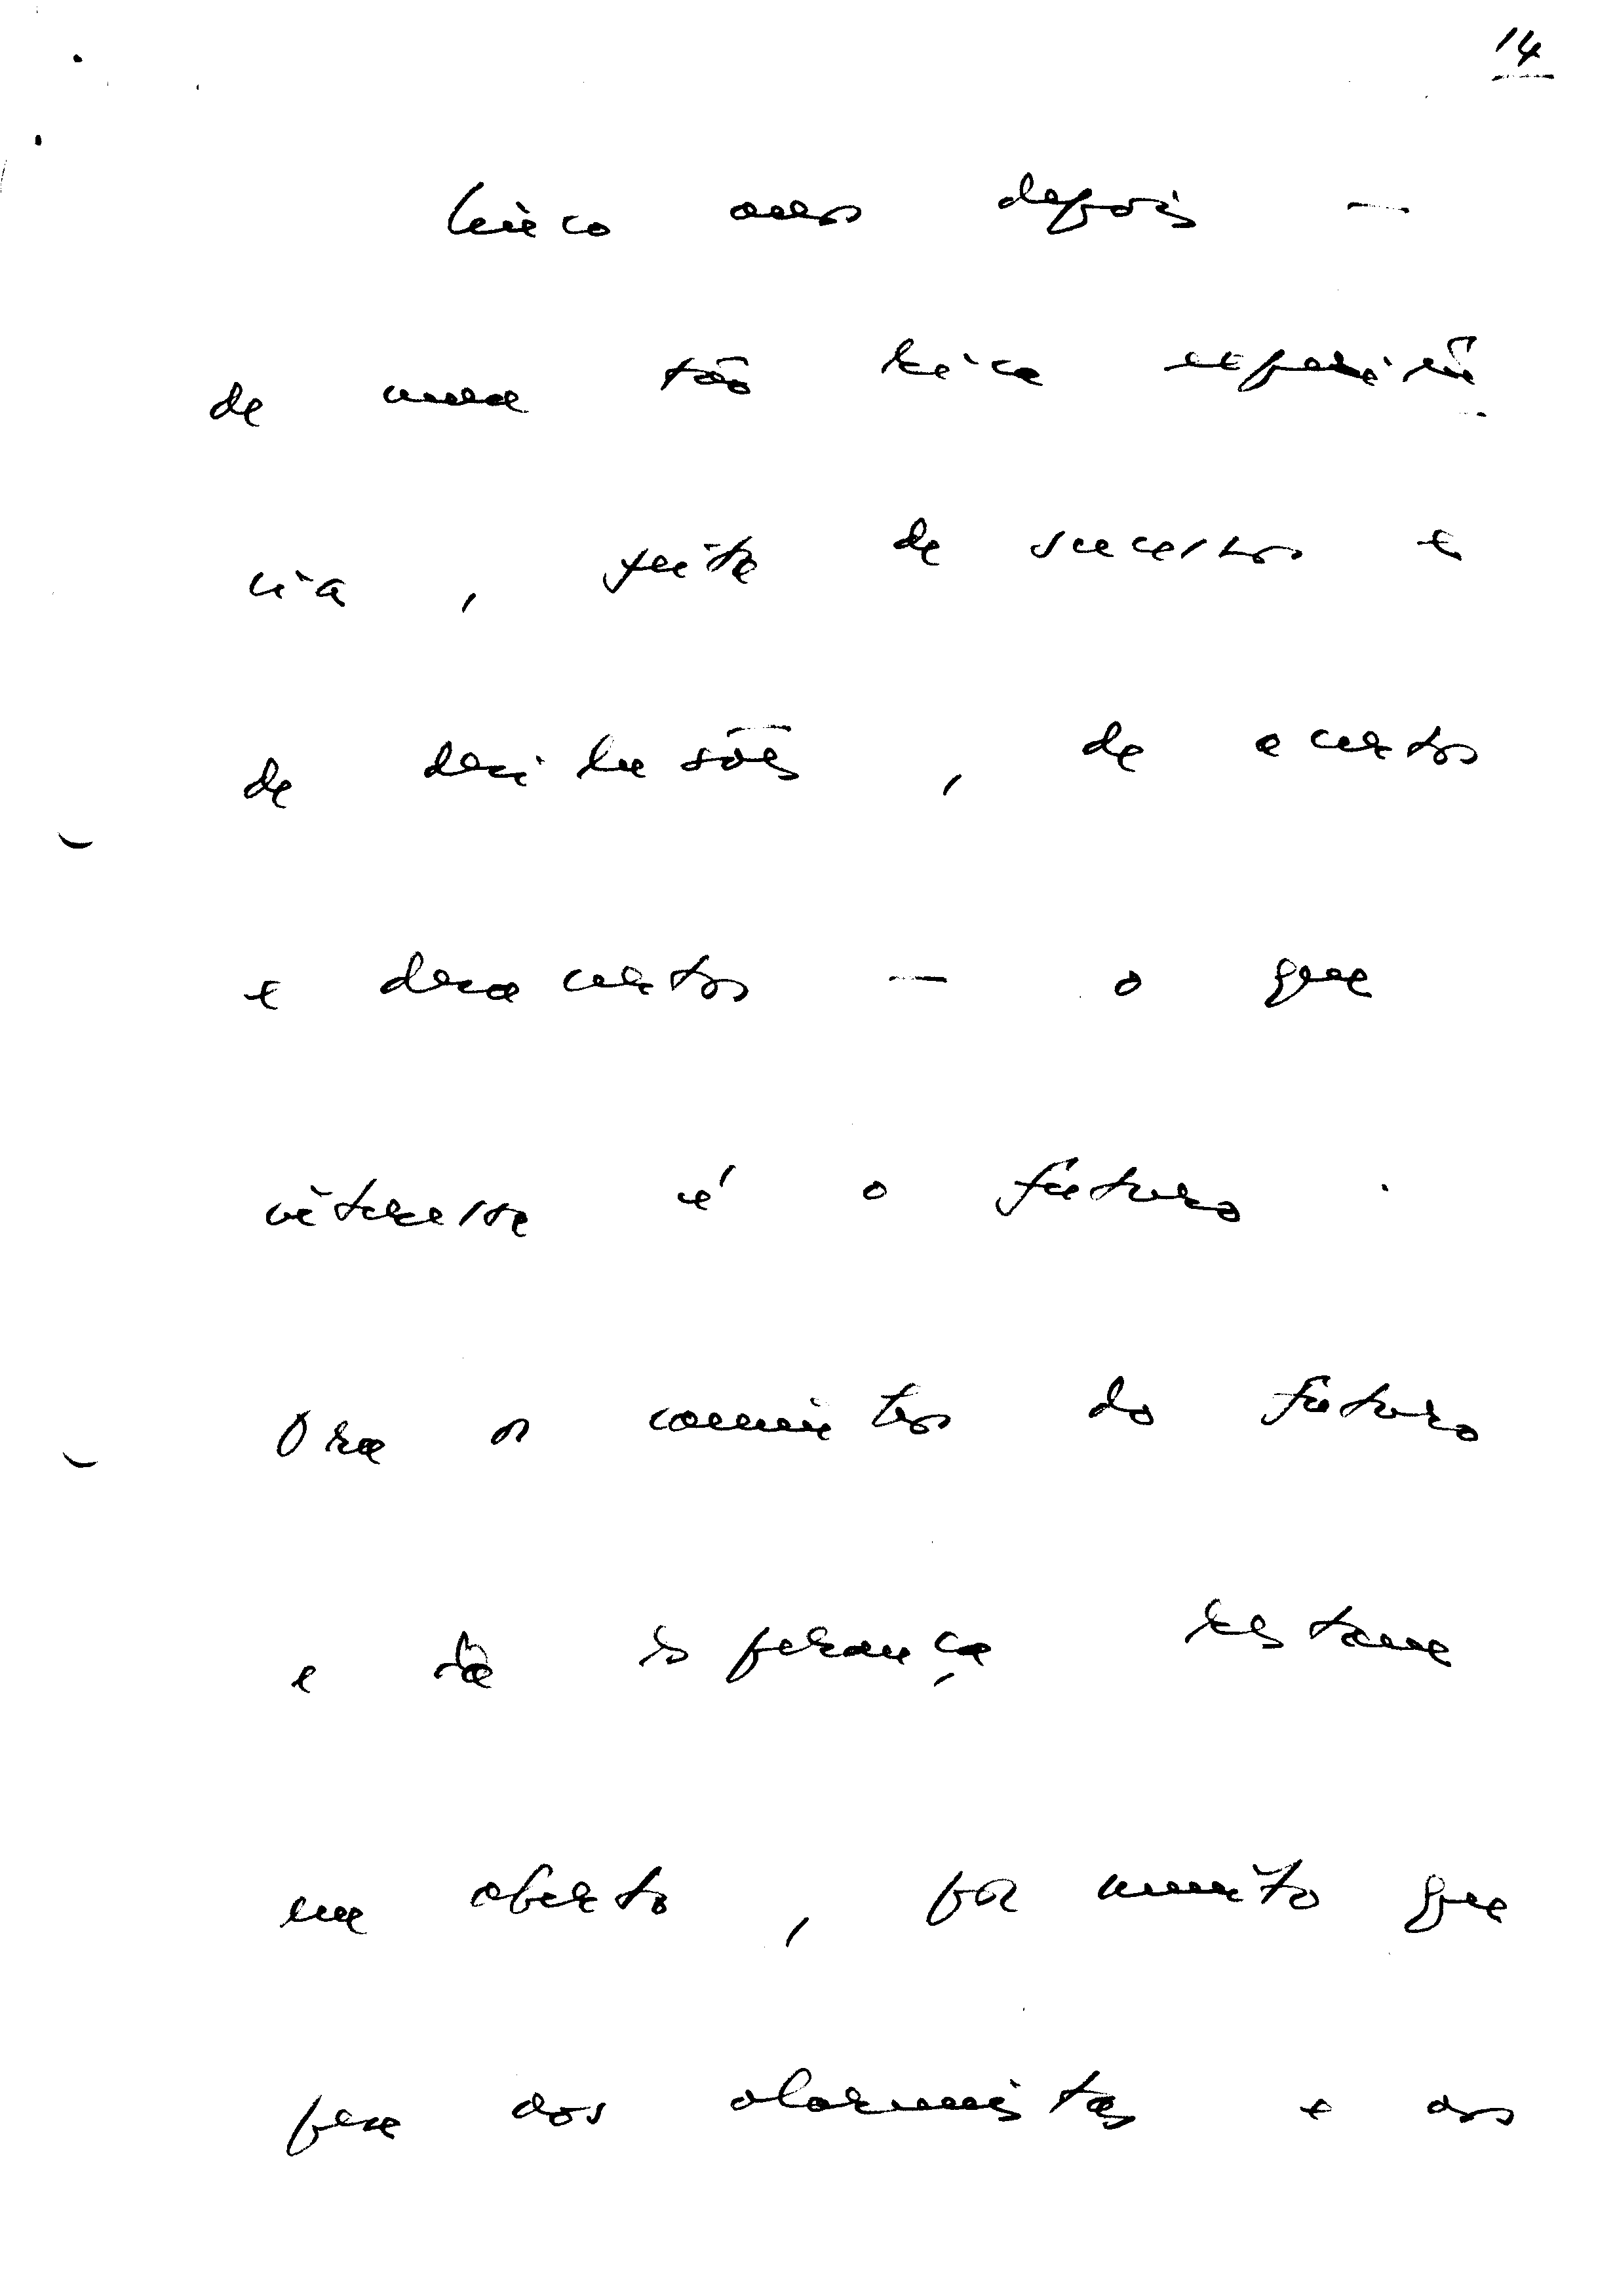 14
Cinco anos depois —
de uma tão rica experiên
cia, feita de sucessos e
de desilusões, de acertos
e desacertos — o que
interessa é o futuro.
Ora os caminhos do futuro
e da esperança restam
em aberto, por muito que
pese aos alarmistas e aos